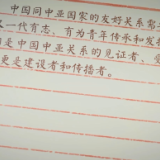 中国同中亚国家的友好关系需
一代有志、有为青年传承和发扬
是中国中亚关系的见证者、受
更是建设者和传播者。